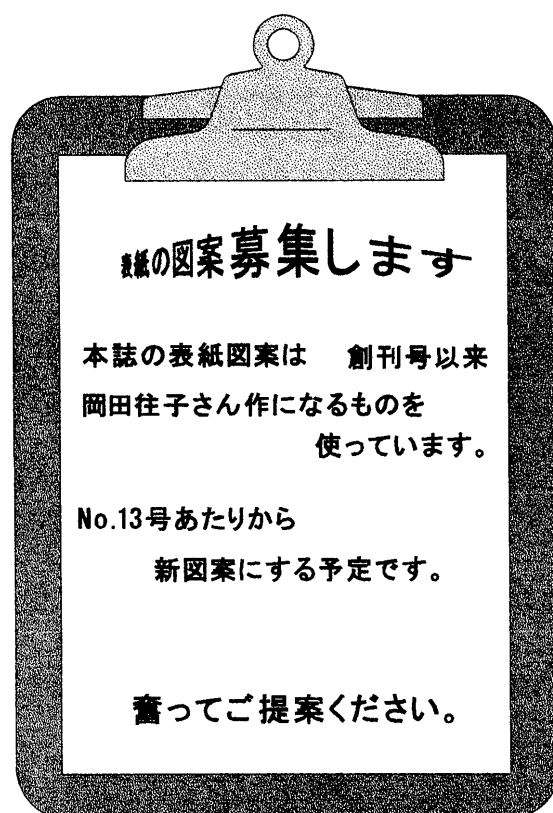 表紙の図案募集します
本誌の表紙図案は 創刊号以来
岡田往子さん作になるものを
使っています。
No.13号あたりから
新図案にする予定です。
奮ってご提案ください。